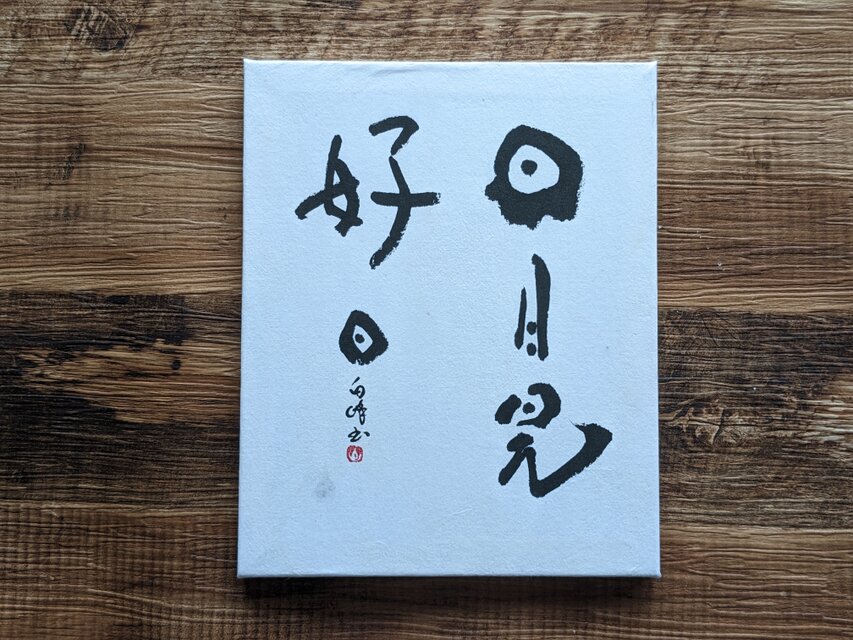 日日是
好日
白峰书